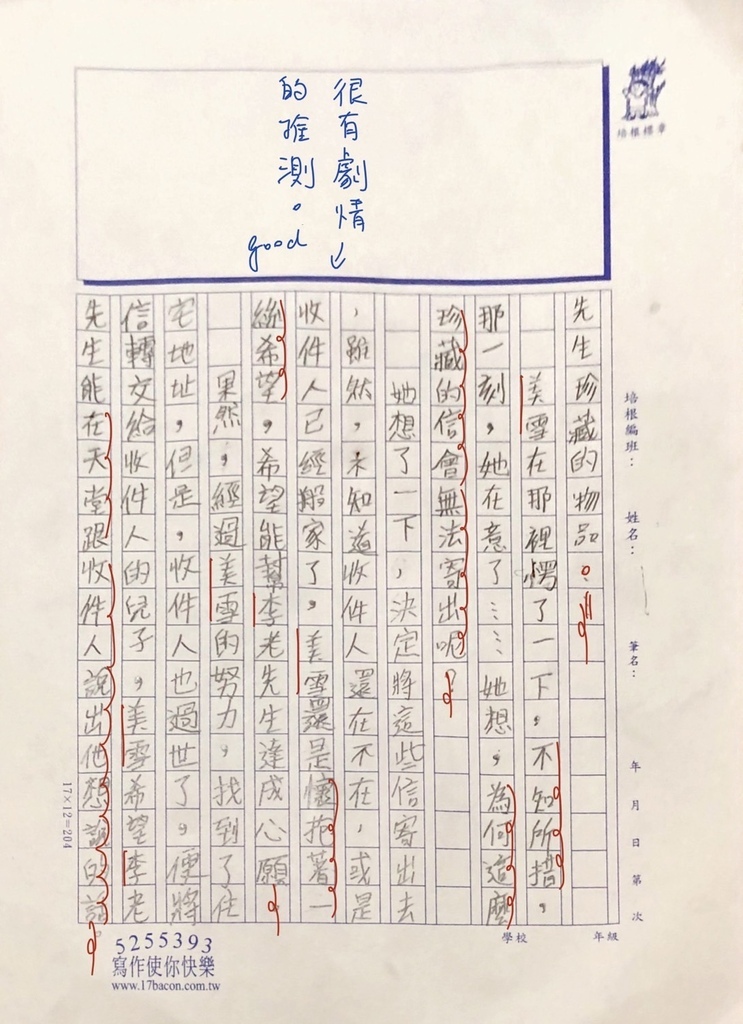 很有劇情
的推測。
good
培根標章
培根編班：
姓名：
筆名：
年 月 日 第 次
年級
學校
先生珍藏的物品。
美雪在那裡愣了一下，不知所措，
那一刻，她在意了……她想，為何這麼
珍藏的信會無法寄出呢？
她想了一下，決定將這些信寄出去
，雖然，未知道收件人還在不在，或是
收件人已經搬家了。美雪還是懷抱著一
絲希望，希望能幫李老先生達成心願。
果然，經過美雪的努力，找到了住
宅地址，但是，收件人也過世了，便將
信轉交給收件人的兒子，美雪希望李老
先生能在天堂跟收件人說出他想說的話。
17×12=204
5255393
寫作使你快樂
www.17bacon.com.tw